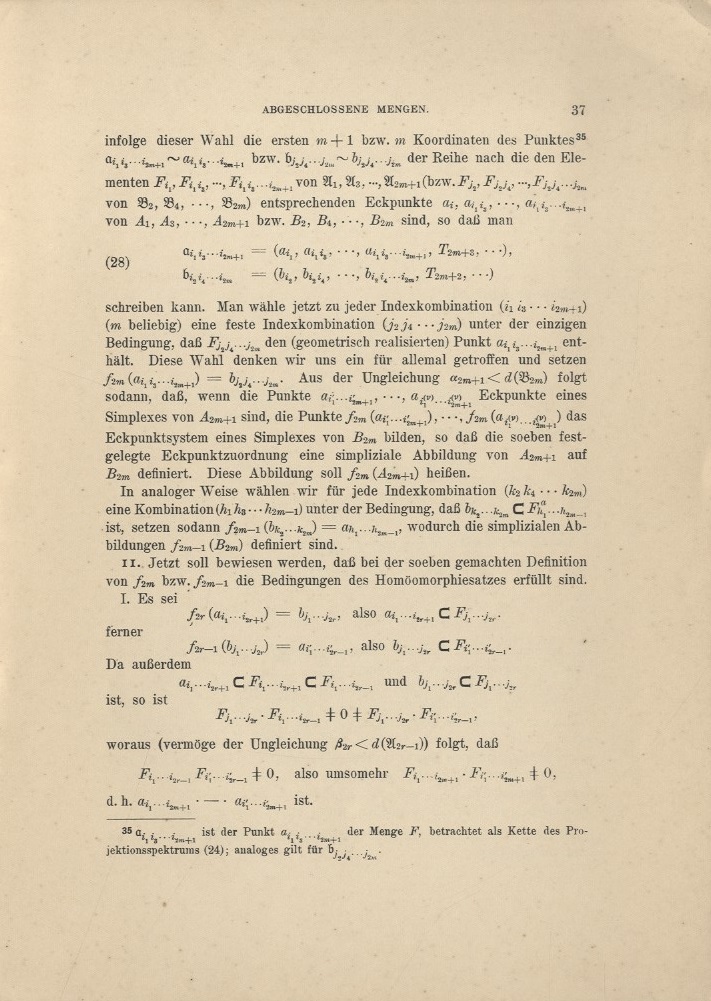 ABGESCHLOSSENE MENGEN. 37
infolge dieser Wahl die ersten m + 1 bzw. m Koordinaten des Punktes³⁵
𝔞_{i₁ i₃ ··· i_{2m+1}} ∼ a_{i₁ i₃ ··· i_{2m+1}} bzw. 𝔟_{j₂ j₄ ··· j_{2m}} ∼ b_{j₂ j₄ ··· j_{2m}} der Reihe nach die den Ele-
menten F_{i₁}, F_{i₁ i₃}, ···, F_{i₁ i₃ ··· i_{2m+1}} von 𝔄₁, 𝔄₃, ···, 𝔄_{2m+1} (bzw. F_{j₂}, F_{j₂ j₄}, ···, F_{j₂ j₄ ··· j_{2m}}
von 𝔅₂, 𝔅₄, ···, 𝔅_{2m}) entsprechenden Eckpunkte a_i, a_{i₁ i₃}, ···, a_{i₁ i₃ ··· i_{2m+1}}
von A₁, A₃, ···, A_{2m+1} bzw. B₂, B₄, ···, B_{2m} sind, so daß man
(28) 𝔞_{i₁ i₃ ··· i_{2m+1}} = (a_{i₁}, a_{i₁ i₃}, ···, a_{i₁ i₃ ··· i_{2m+1}}, T_{2m+3}, ···),
𝔟_{i₂ i₄ ··· i_{2m}} = (b_{i₂}, b_{i₂ i₄}, ···, b_{i₂ i₄ ··· i_{2m}}, T_{2m+2}, ···)
schreiben kann. Man wähle jetzt zu jeder Indexkombination (i₁ i₃ ··· i_{2m+1})
(m beliebig) eine feste Indexkombination (j₂ j₄ ··· j_{2m}) unter der einzigen
Bedingung, daß F_{j₂ j₄ ··· j_{2m}} den (geometrisch realisierten) Punkt a_{i₁ i₃ ··· i_{2m+1}} ent-
hält. Diese Wahl denken wir uns ein für allemal getroffen und setzen
f_{2m} (a_{i₁ i₃ ··· i_{2m+1}}) = b_{j₂ j₄ ··· j_{2m}}. Aus der Ungleichung α_{2m+1} < d(𝔅_{2m}) folgt
sodann, daß, wenn die Punkte a_{i'₁ ··· i'_{2m+1}}, ···, a_{i₁^{(ν)} ··· i_{2m+1}^{(ν)}} Eckpunkte eines
Simplexes von A_{2m+1} sind, die Punkte f_{2m} (a_{i'₁ ··· i'_{2m+1}}), ···, f_{2m} (a_{i₁^{(ν)} ··· i_{2m+1}^{(ν)}}) das
Eckpunktsystem eines Simplexes von B_{2m} bilden, so daß die soeben fest-
gelegte Eckpunktzuordnung eine simpliziale Abbildung von A_{2m+1} auf
B_{2m} definiert. Diese Abbildung soll f_{2m} (A_{2m+1}) heißen.
In analoger Weise wählen wir für jede Indexkombination (k₂ k₄ ··· k_{2m})
eine Kombination (h₁ h₃ ··· h_{2m−1}) unter der Bedingung, daß b_{k₂ ··· k_{2m}} ⊂ F^a_{h₁ ··· h_{2m−1}}
ist, setzen sodann f_{2m−1} (b_{k₂ ··· k_{2m}}) = a_{h₁ ··· h_{2m−1}}, wodurch die simplizialen Ab-
bildungen f_{2m−1} (B_{2m}) definiert sind.
11. Jetzt soll bewiesen werden, daß bei der soeben gemachten Definition
von f_{2m} bzw. f_{2m−1} die Bedingungen des Homöomorphiesatzes erfüllt sind.
I. Es sei
f_{2r} (a_{i₁ ··· i_{2r+1}}) = b_{j₁ ··· j_{2r}}, also a_{i₁ ··· i_{2r+1}} ⊂ F_{j₁ ··· j_{2r}}.
ferner
f_{2r−1} (b_{j₁ ··· j_{2r}}) = a_{i'₁ ··· i'_{2r−1}}, also b_{j₁ ··· j_{2r}} ⊂ F_{i'₁ ··· i'_{2r−1}}.
Da außerdem
a_{i₁ ··· i_{2r+1}} ⊂ F_{i₁ ··· i_{2r+1}} ⊂ F_{i₁ ··· i_{2r−1}} und b_{j₁ ··· j_{2r}} ⊂ F_{j₁ ··· j_{2r}}
ist, so ist
F_{j₁ ··· j_{2r}} · F_{i₁ ··· i_{2r−1}} ≠ 0 ≠ F_{j₁ ··· j_{2r}} · F_{i'₁ ··· i'_{2r−1}},
woraus (vermöge der Ungleichung β_{2r} < d(𝔄_{2r−1})) folgt, daß
F_{i₁ ··· i_{2r−1}} F_{i'₁ ··· i'_{2r−1}} ≠ 0, also umsomehr F_{i₁ ··· i_{2m+1}} · F_{i'₁ ··· i'_{2m+1}} ≠ 0,
d. h. a_{i₁ ··· i_{2m+1}} · — · a_{i'₁ ··· i'_{2m+1}} ist.
³⁵ 𝔞_{i₁ i₃ ··· i_{2m+1}} ist der Punkt a_{i₁ i₃ ··· i_{2m+1}} der Menge F, betrachtet als Kette des Pro-
jektionsspektrums (24); analoges gilt für 𝔟_{j₂ j₄ ··· j_{2m}}.